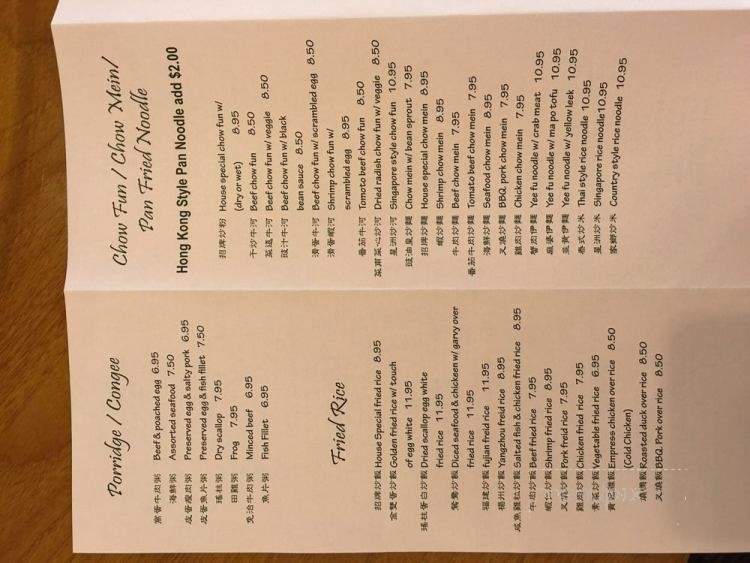 Porridge / Congee
窩蛋牛肉粥 Beef & poached egg 6.95
海鮮粥 Assorted seafood 7.50
皮蛋瘦肉粥 Preserved egg & salty pork 6.95
皮蛋魚片粥 Preserved egg & fish fillet 7.50
瑤柱粥 Dry scallop 7.95
田雞粥 Frog 7.95
免治牛肉粥 Minced beef 6.95
魚片粥 Fish Fillet 6.95
Fried Rice
招牌炒飯 House Special fried rice 8.95
金雙蛋炒飯 Golden fried rice w/ touch
of egg white 11.95
瑤柱蛋白炒飯 Dried scallop egg white
fried rice 11.95
鴛鴦炒飯 Diced seafood & chickeen w/ garry over
fried rice 11.95
福建炒飯 fujian freid rice 11.95
楊州炒飯 Yangzhou freid rice 8.95
咸魚雞粒炒飯 Salted fish & chicken fried rice 8.95
牛肉炒飯 Beef fried rice 7.95
蝦仁炒飯 Shrimp fried rice 8.95
叉燒炒飯 Pork freid rice 7.95
雞肉炒飯 Chicken fried rice 7.95
素菜炒飯 Vegetable fried rice 6.95
貴妃雞飯 Empress chicken over rice 8.50
(Cold Chicken)
燒鴨飯 Roasted duck over rice 8.50
叉燒飯 BBQ. Pork over rice 8.50
Chow Fun / Chow Mein/
Pan Fried Noodle
Hong Kong Style Pan Noodle add $2.00
招牌炒粉 House special chow fun w/
(dry or wet) 8.95
干炒牛河 Beef chow fun 8.50
菜遠牛河 Beef chow fun w/ veggie 8.50
豉汁牛河 Beef chow fun w/ black
bean sauce 8.50
滑蛋牛河 Beef chow fun w/ scrambled egg 8.50
滑蛋蝦河 Shrimp chow fun w/
scrambled egg 8.95
番茄牛河 Tomoto beef chow fun 8.50
菜甫菜心炒河 Dried radish chow fun w/ veggie 8.50
星洲炒河 Singapore style chow fun 10.95
豉油皇炒麵 Chow mein w/ bean sprout 7.95
招牌炒麵 House special chow mein 8.95
蝦炒麵 Shrimp chow mein 8.95
牛肉炒麵 Beef chow mein 7.95
番茄牛肉炒麵 Tomato beef chow mein 7.95
海鮮炒麵 Seafood chow mein 8.95
叉燒炒麵 BBQ. pork chow mein 7.95
雞肉炒麵 Chicken chow mein 7.95
蟹肉伊麵 Yee fu noodle w/ crab meat 10.95
麻婆伊麵 Yee fu noodle w/ ma po tofu 10.95
韭黃伊麵 Yee fu noodle w/ yellow leek 10.95
泰式炒米 Thai style rice noodle 10.95
星洲炒米 Singapore rice noodle 10.95
家鄉炒米 Country style rice noodle 10.95